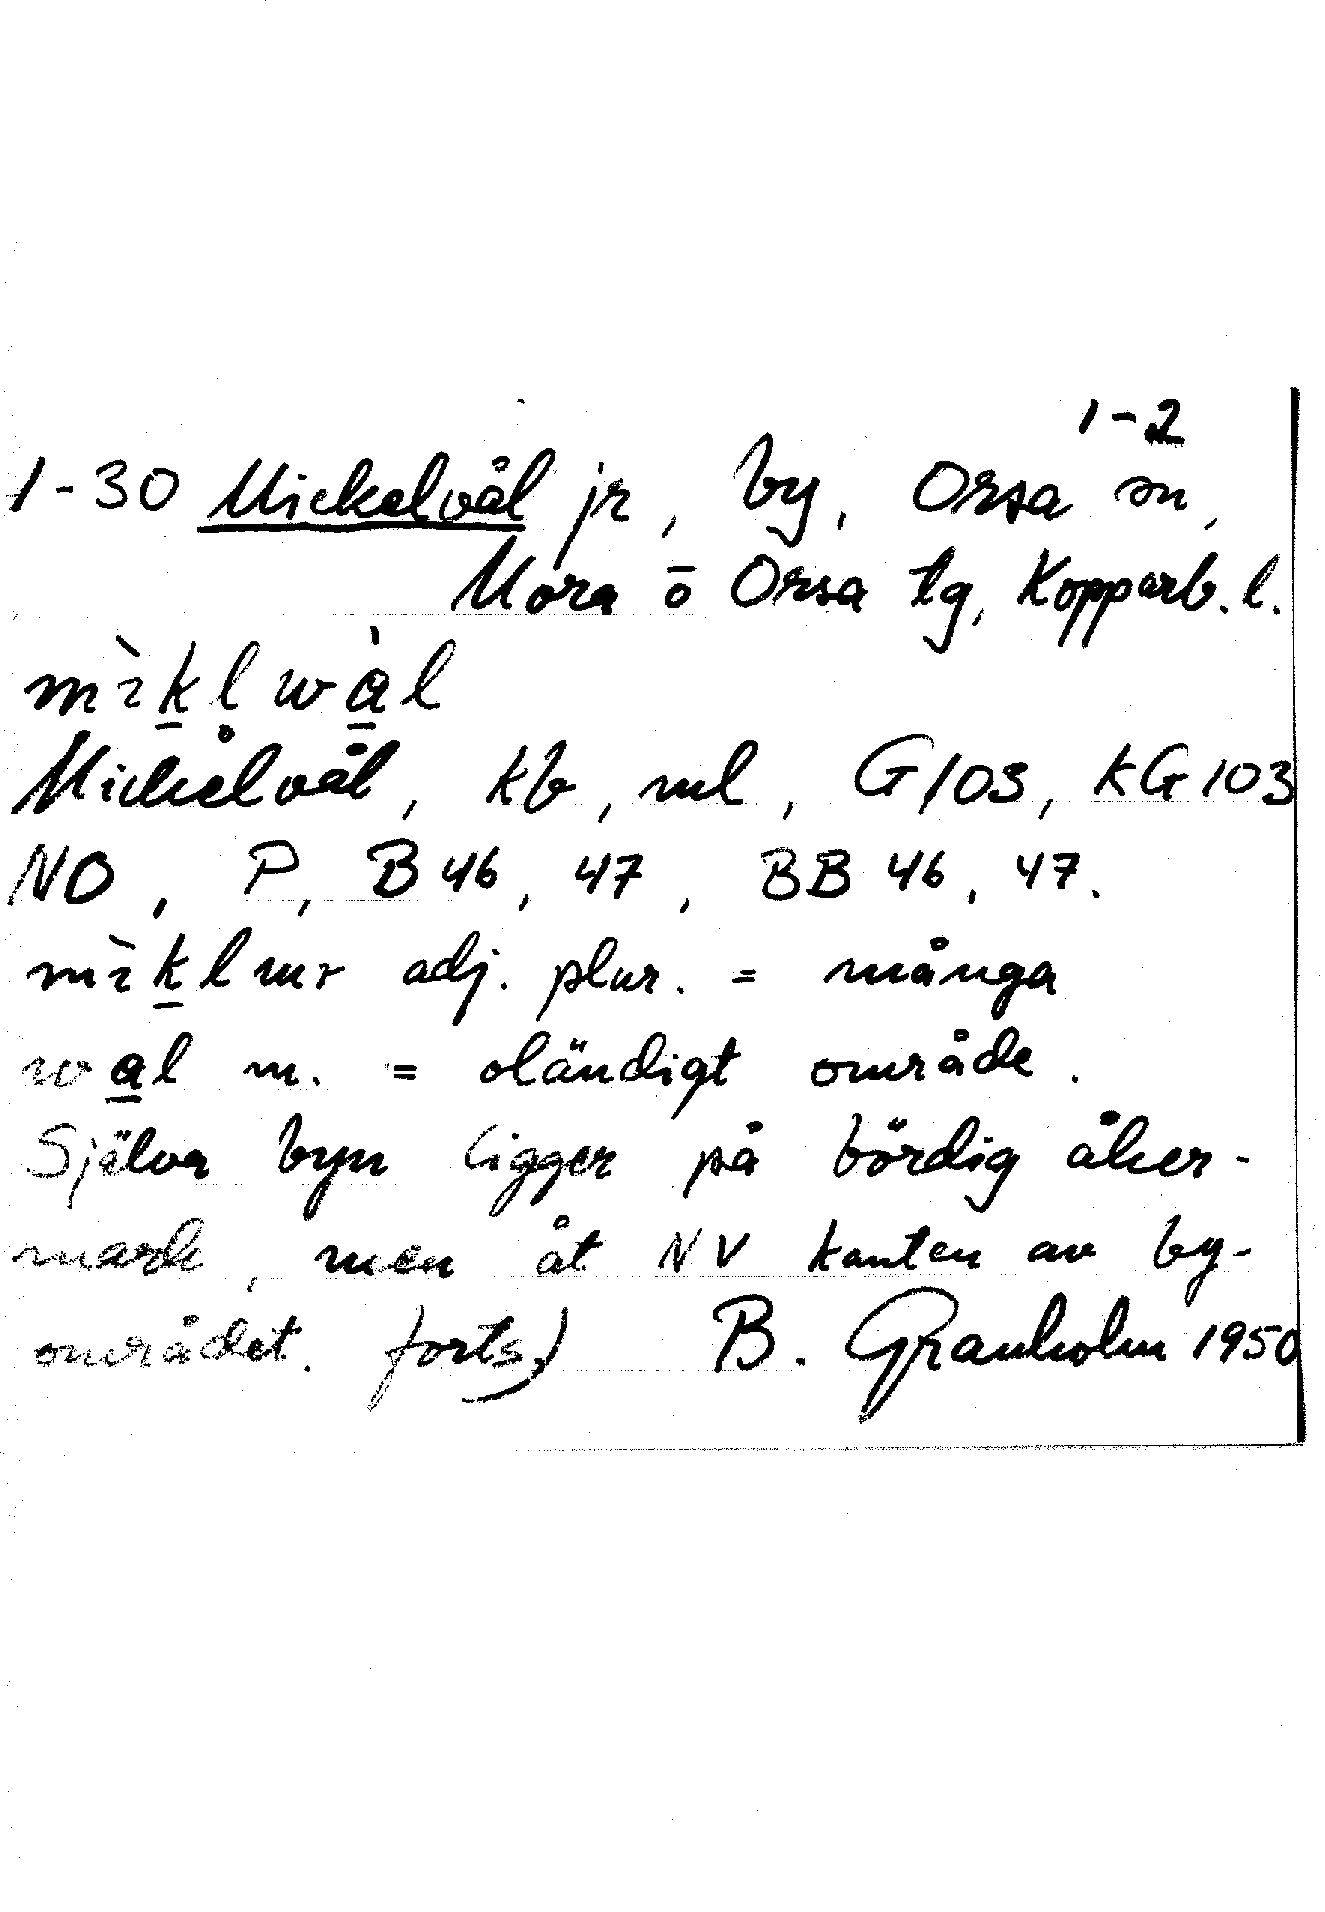 1-2
1-30 Mickelvål jr, by, Orsa sn,
Mora o Orsa tg, Kopparb. l.
mìk̲l wà̲l
Mickelvål, kb, ml, G103, KG103
NO, P, B 46, 47, BB 46, 47.
mìk̲lur adj. plur. = många
wa̲l m. = oländigt område.
Själva byn ligger på bördig åker-
mark, men åt NV kanten av by-
området. forts.) B. Granholm 1950